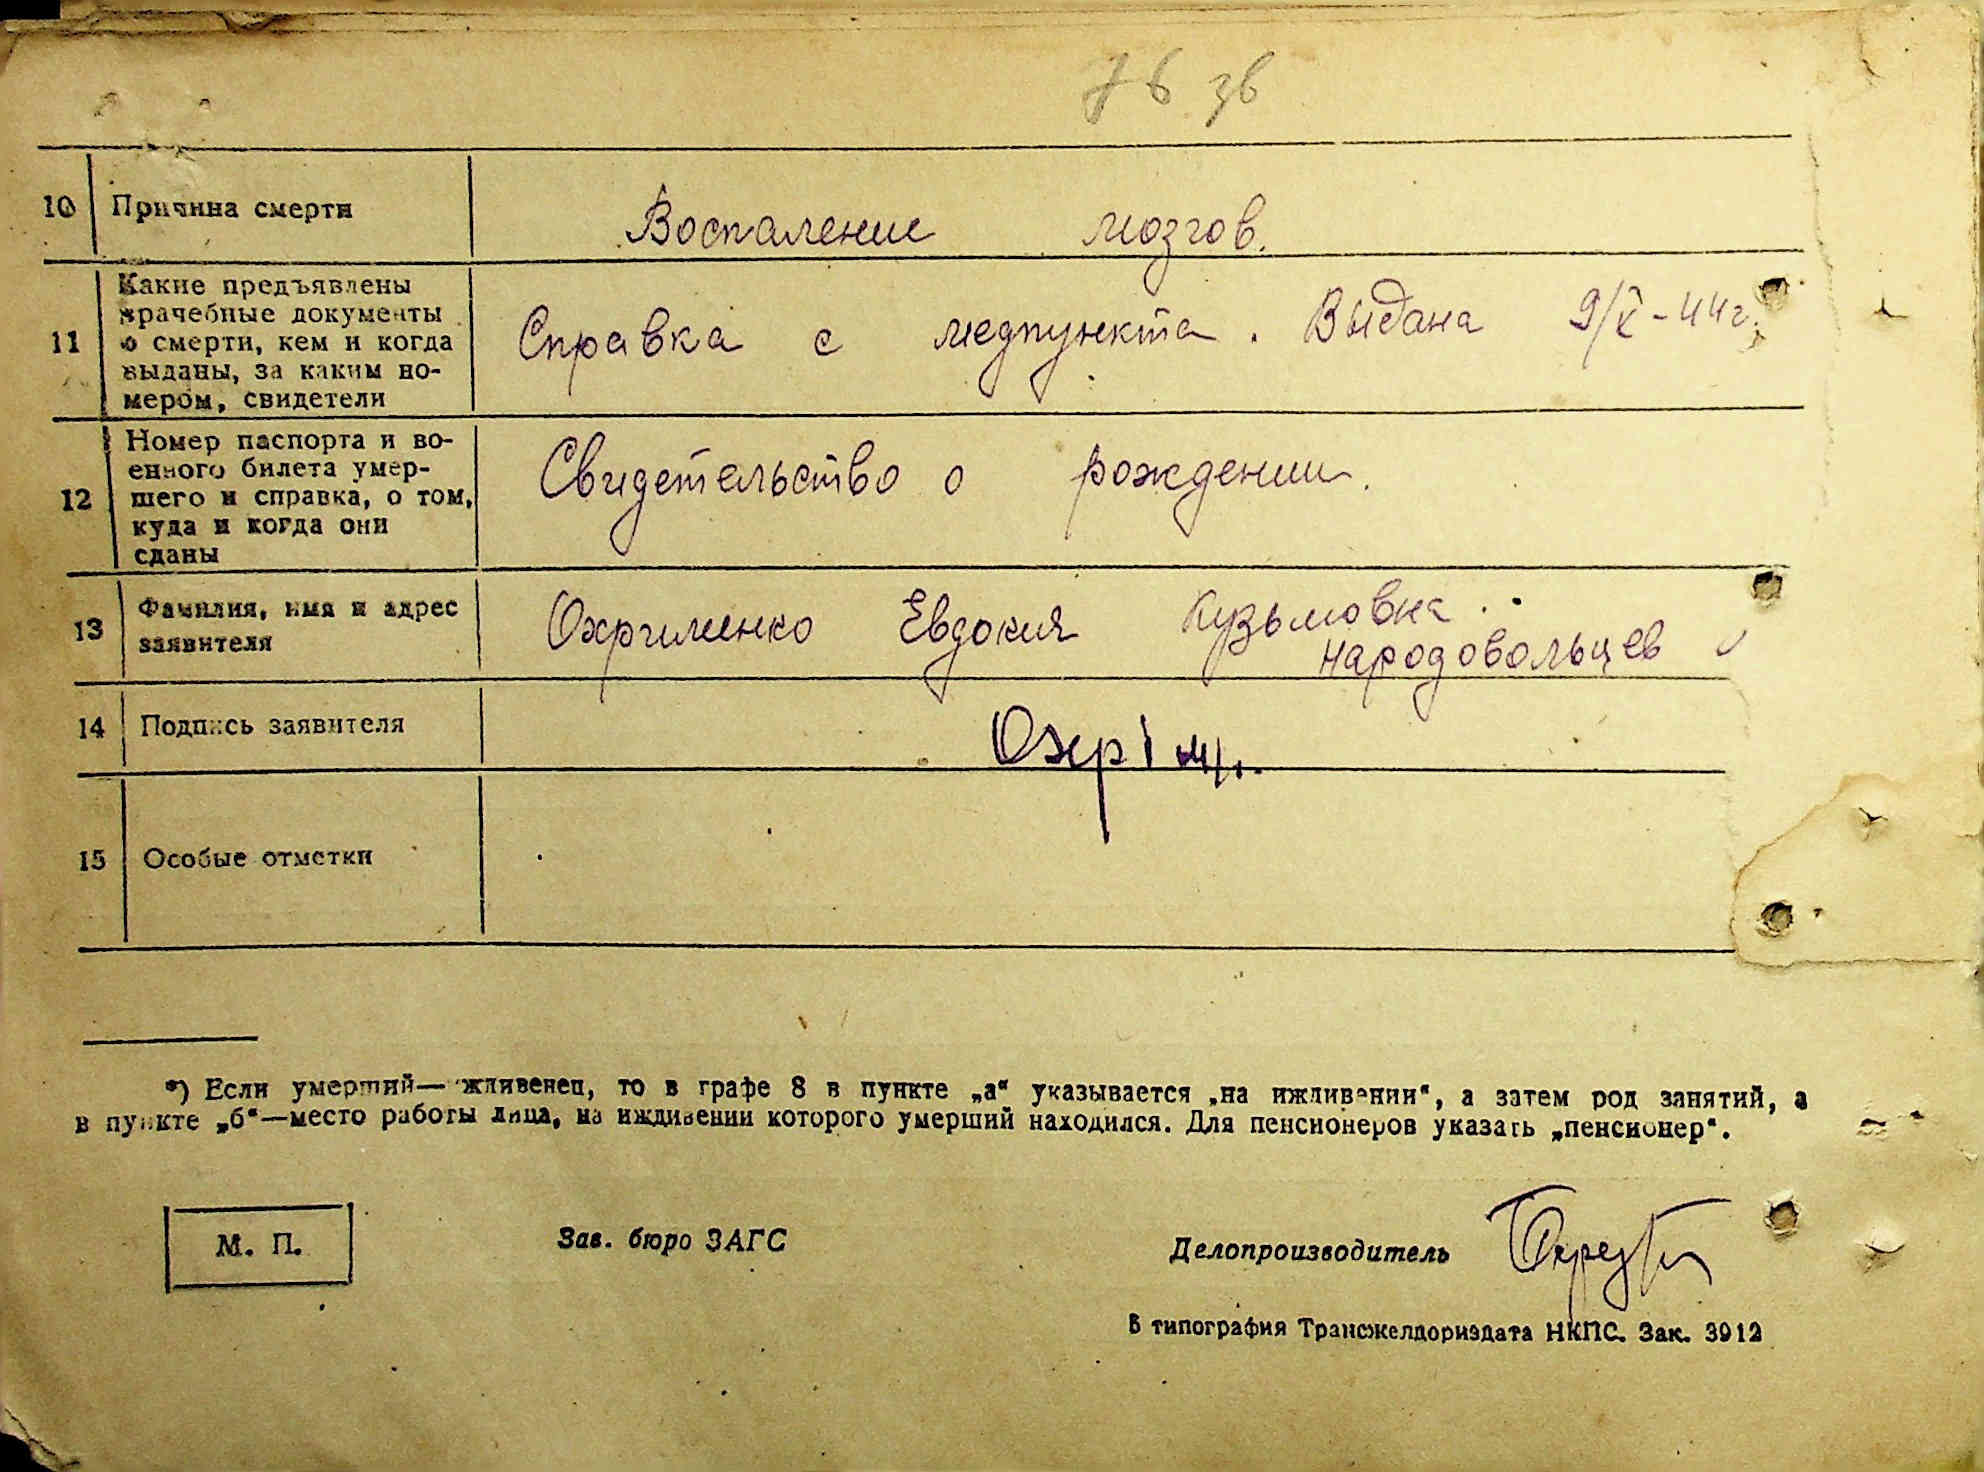 76 зв
10 Причина смерти Воспаление мозгов.
11 Какие предъявлены
врачебные документы
о смерти, кем и когда
выданы, за каким но-
мером, свидетели
Справка с медпункта. Выдана 9/X-44г.
12 Номер паспорта и во-
енного билета умер-
шего и справка, о том,
куда и когда они
сданы
Свидетельство о рождении.
13 Фамилия, имя и адрес
заявителя
Охрименко Евдокия Кузьмовна
народовольцев
14 Подпись заявителя
15 Особые отметки
*) Если умерший— иждивенец, то в графе 8 в пункте „а“ указывается „на иждивении“, а затем род занятий, а
в пункте „б“—место работы лица, на иждивении которого умерший находился. Для пенсионеров указать „пенсионер“.
М. П.
Зав. бюро ЗАГС
Делопроизводитель
В типография Трансжелдориздата НКПС. Зак. 3912